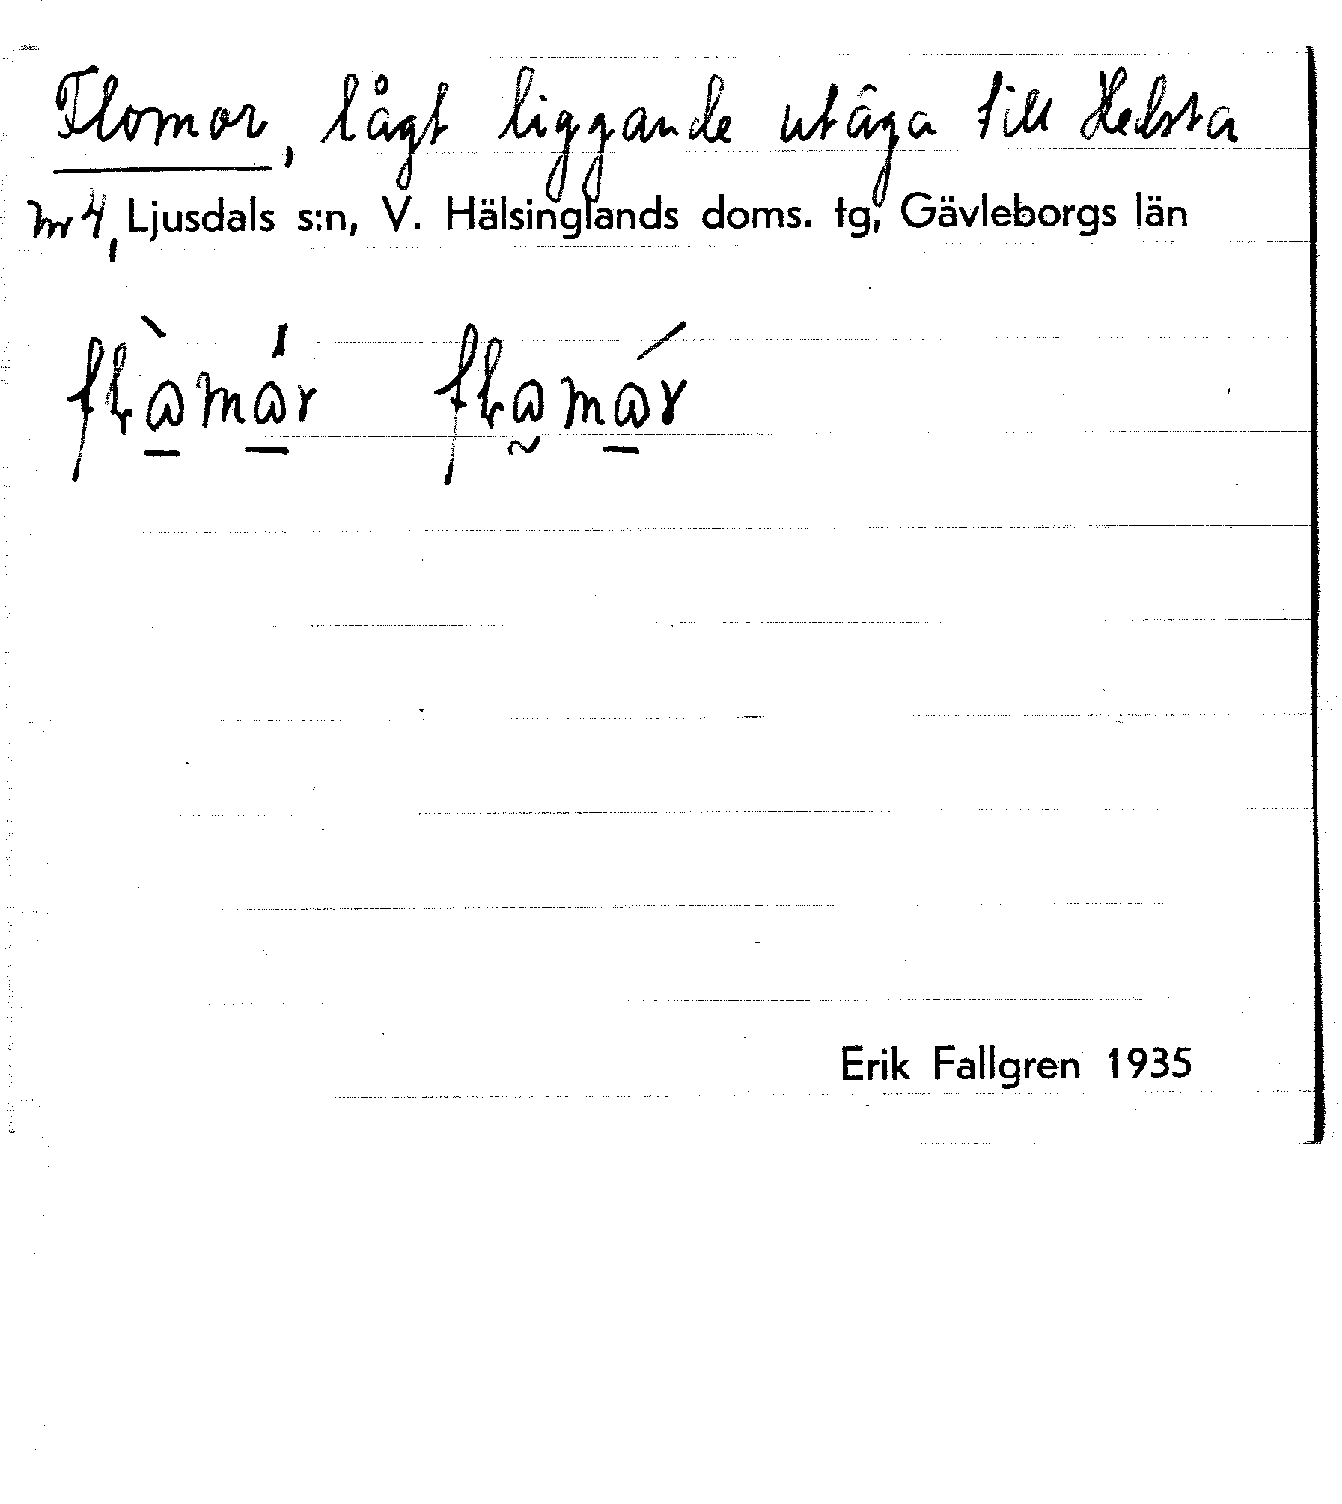 Flomor, lågt liggande utäga till Helsta
nr 4, Ljusdals s:n, V. Hälsinglands doms. tg, Gävleborgs län
Erik Fallgren 1935